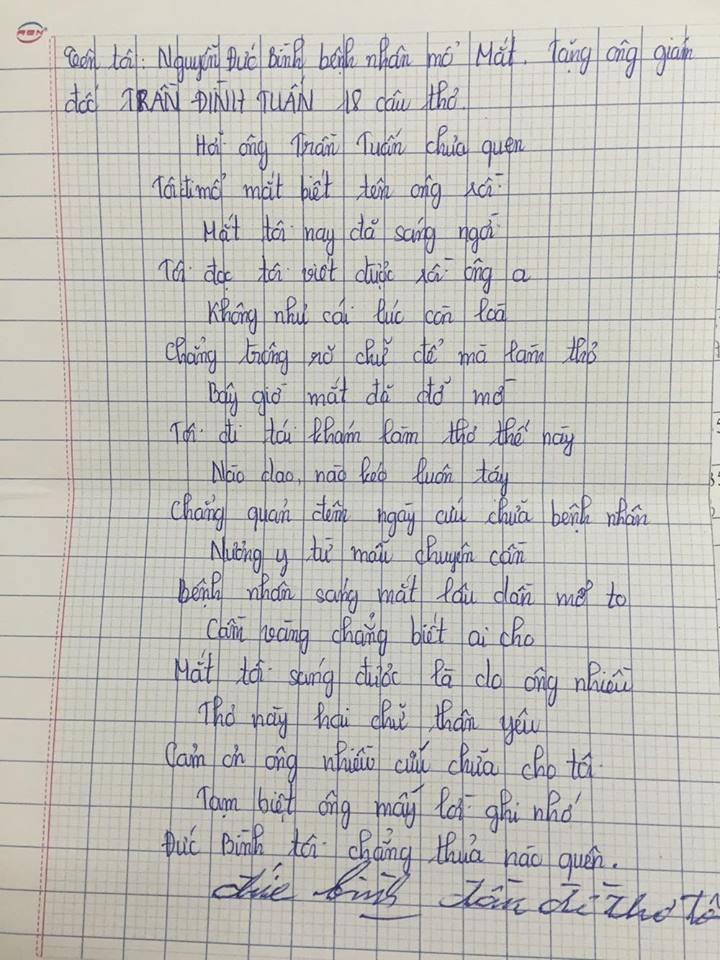 Tên tôi: Nguyễn Đức Bình bệnh nhân mổ Mắt. Tặng ông giám
đốc TRẦN ĐÌNH TUẤN 18 câu thơ.
Hỡi ông Trần Tuấn chưa quen
Tôi đi mổ mắt biết tên ông rồi
Mắt tôi nay đã sáng ngời
Tôi đọc tôi viết được rồi ông ạ
Không như cái lúc còn loà
Chẳng trông rõ chữ để mà làm thơ
Bây giờ mắt đã đỡ mờ
Tôi đi tái khám làm thơ thế này
Nào dao, nào kéo luôn tay
Chẳng quản đêm ngày cứu chữa bệnh nhân
Nương y từ mẫu chuyên cần
Bệnh nhân sáng mắt lâu dần mở to
Cầm vàng chẳng biết ai cho
Mắt tôi sáng được là do ông nhiều
Thơ này hai chữ thân yêu
Cảm ơn ông nhiều cứu chữa cho tôi
Tạm biệt ông mấy lời ghi nhớ
Đức Bình tôi chẳng thủa nào quên.
đức bình